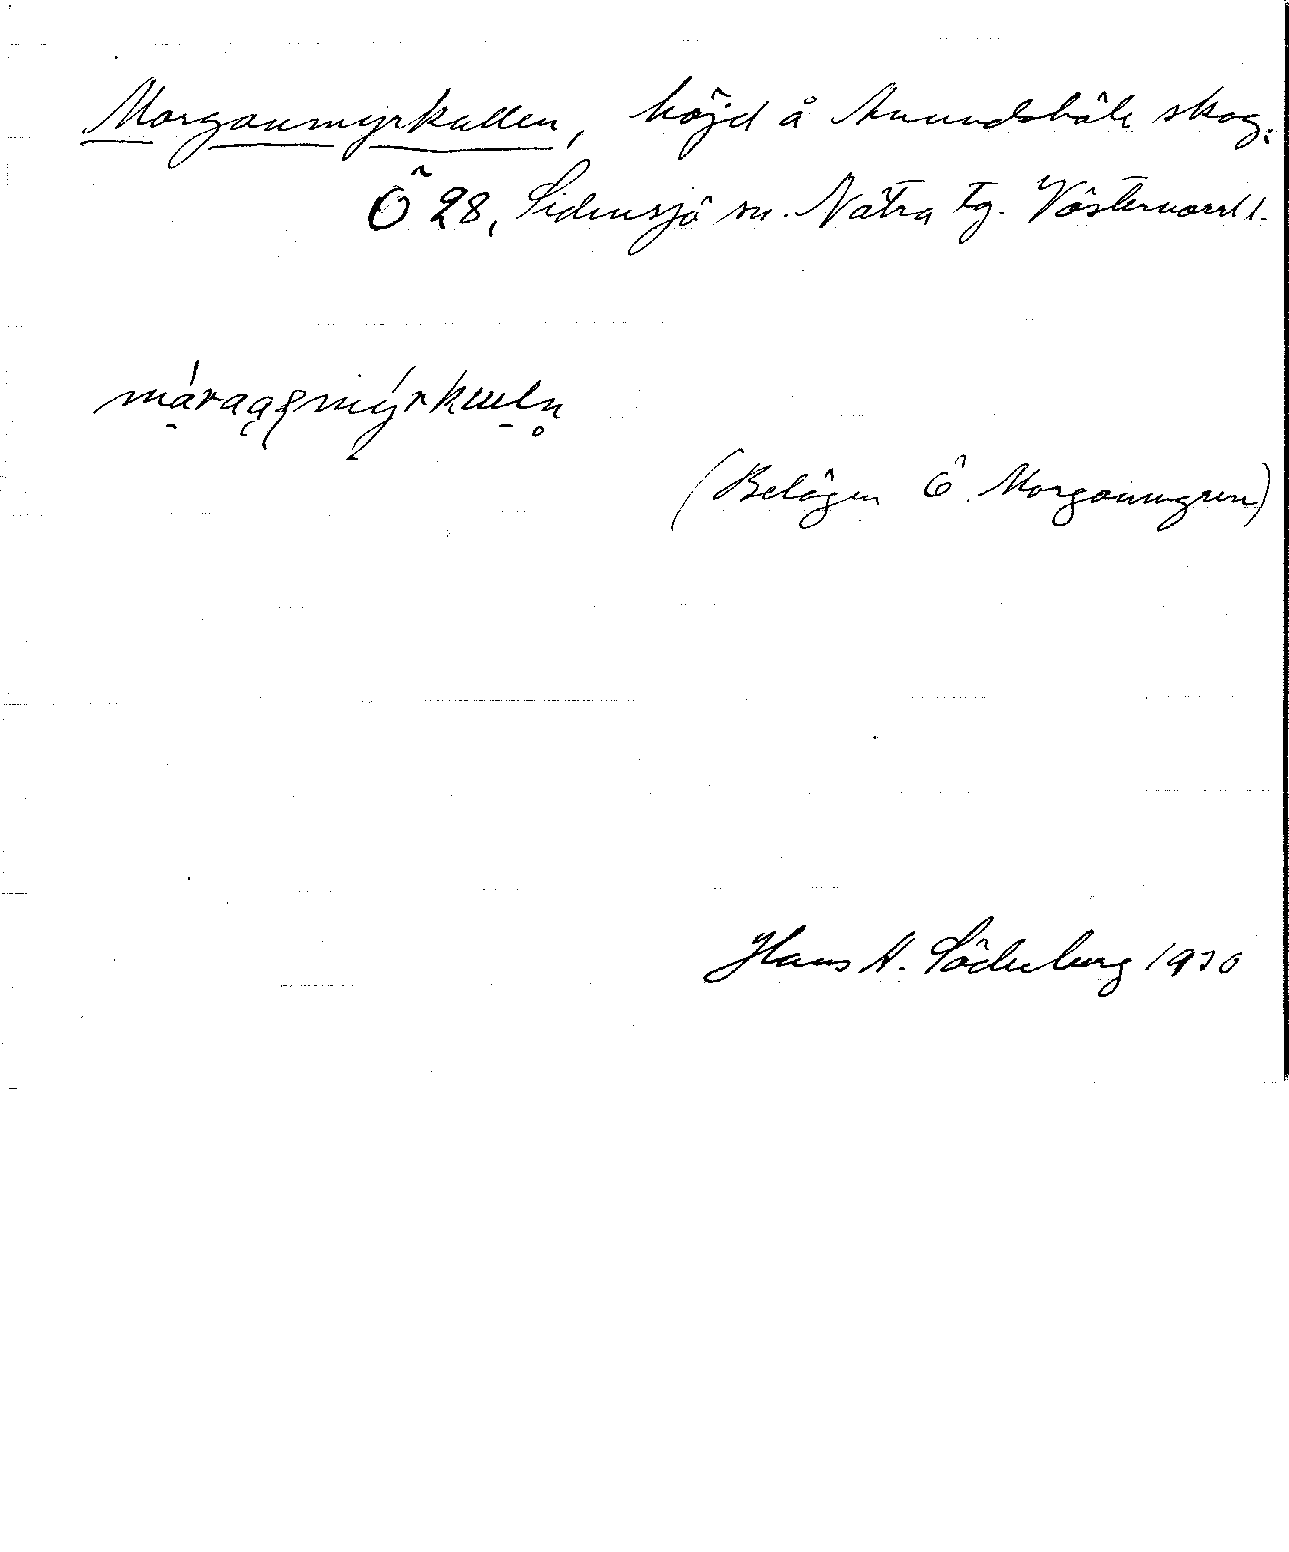 Morgonmyrkullen, höjd å Anundsböle skog.
Ö 28, Sidensjö sn. Nätra tg. Västernorrl l.
(Belägen Ö. Morgonmyren)
Hans A. Söderberg 1970